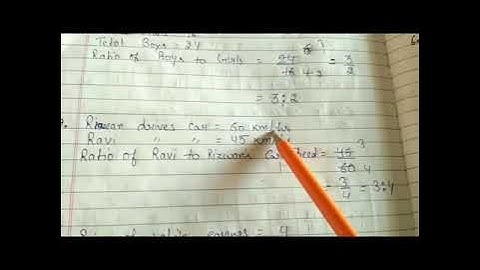 Total Boys = 24
Ratio of Boys to Girls = 24/16 = 3/2
= 3:2
Rizwan drives Car = 60 km/hr
Ravi " " = 45 km/
Ratio of Ravi to Rizwans Car Speed = 45/60 3 4
= 3/4 = 3:4
= 4